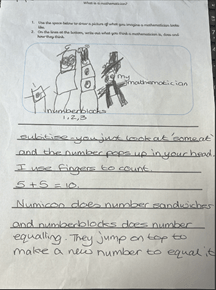 What is a mathematician?
1. Use the space below to draw a picture of what you imagine a mathematician looks like.
2. On the lines at the bottom, write out what you think a mathematician is, does and how they think.
my
mathematician
numberblocks
1, 2, 3
subitise - you just look at 'soment
and the number pops up in your head.
I use fingers to count.
5 + 5 = 10.
Numicon does number sandwiches
and numberblocks does number
equalling. They jump on top to
make a new number to equal it